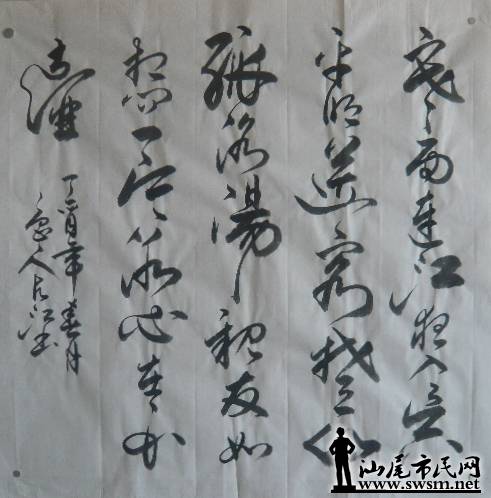 寒雨連江夜入吳
平明送客楚山
孤洛陽親友如
相問一片冰心在玉
壺
丁酉年春月
人長江書
汕尾市民网
www.swsm.net